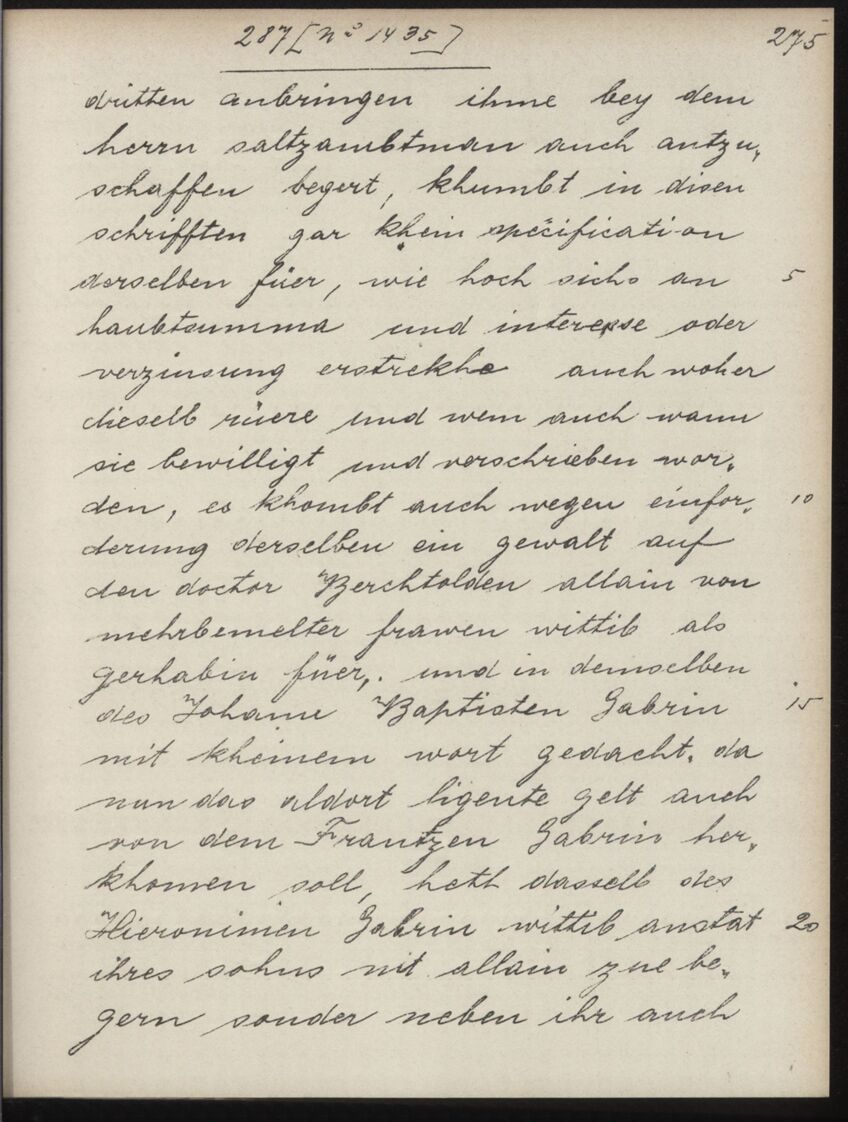 287 [No 1435] 275
dritten anbringen ihme bey dem
herrn saltzambtman auch antzu„
schaffen begert, khumbt in disen
schrifften gar khein specification
derselben füer, wie hoch sichs an 5
haubtsumma und interesse oder
verzinsung erstrekhe auch woher
dieselb rüere und wem auch wann
sie bewilligt und verschrieben wor„
den, es khombt auch wegen einfor„ 10
derung derselben ein gewalt auf
den doctor Berchtolden allain von
mehrbemelter frawen wittib als
gerhabin füer, und in demselben
des Johann Baptisten Gabrin 15
mit kheinem wort gedacht. da
nun das aldort ligente gelt auch
von dem Frantzen Gabrin her„
khomen soll, heth dasselb des
Hieronimen Gabrin wittib anstat 20
ihres sohns nit allain zue be„
gern sonder neben ihr auch